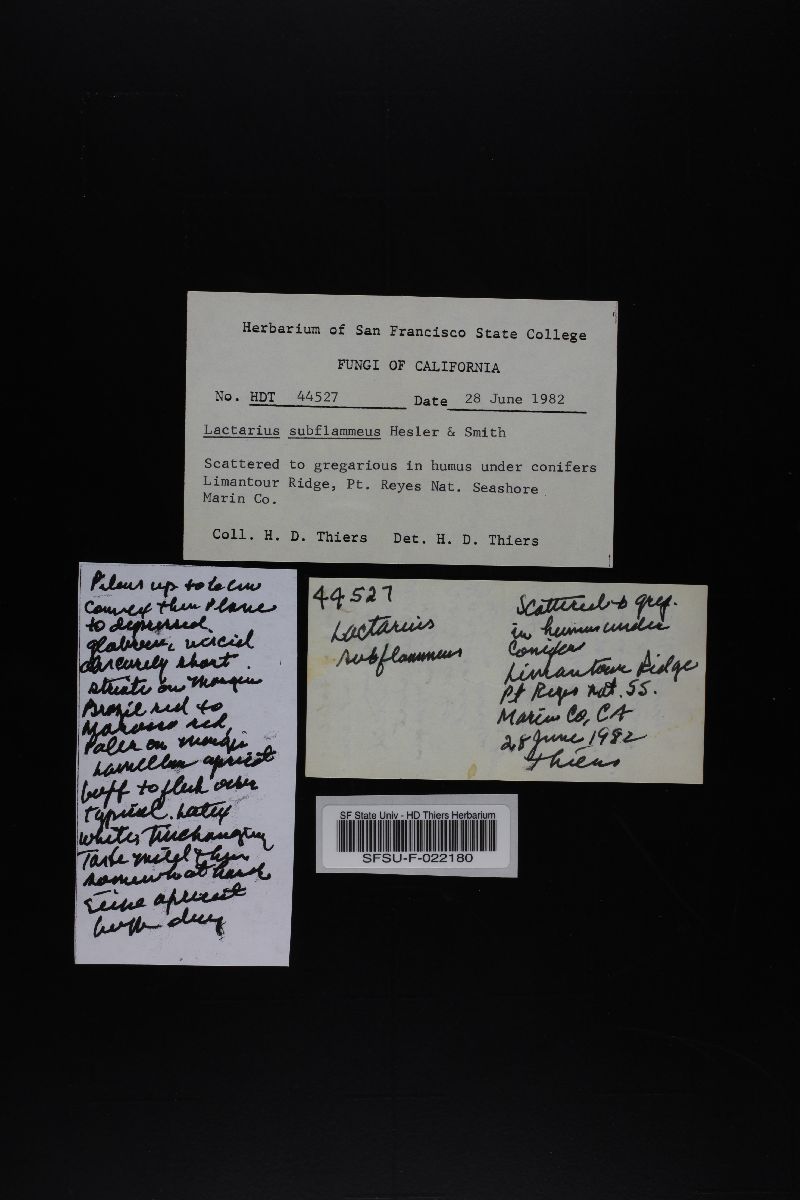 Herbarium of San Francisco State College
FUNGI OF CALIFORNIA
No. HDT 44527 Date 28 June 1982
Lactarius subflammeus Hesler & Smith
Scattered to gregarious in humus under conifers
Limantour Ridge, Pt. Reyes Nat. Seashore
Marin Co.
Coll. H. D. Thiers Det. H. D. Thiers
Pileus up to cm
convex then plane
to depressed
glabrous, viscid
obscurely short
striate on margin
Brazil red to
Morocco red,
Paler on margin
Lamellae apricot
buff to flesh over
typical. Latex
white, unchanging
Taste mild then
somewhat harsh
Stipe apricot
buff dry
44527
Lactarius
subflammeus
Scattered to greg.
in humus under
Conifers
Limantour Ridge
Pt Reyes Nat. SS.
Marin Co, CA
28 June 1982
Thiers
SF State Univ - HD Thiers Herbarium
SFSU-F-022180